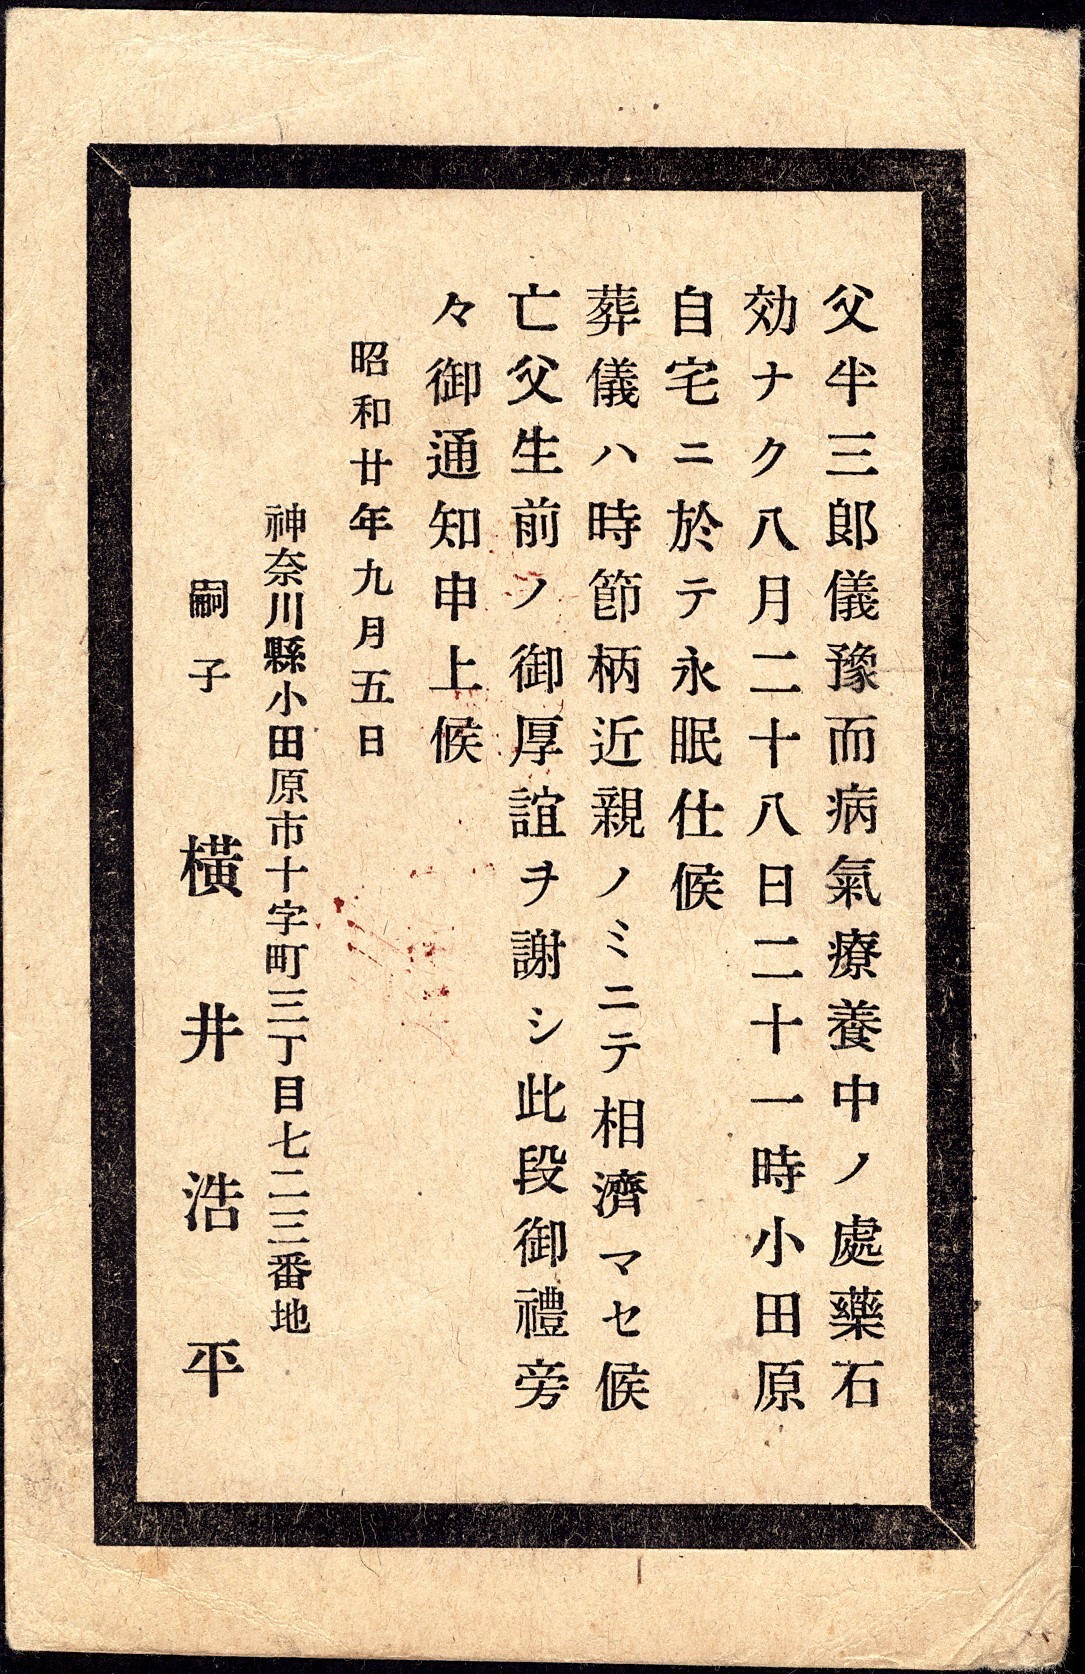 父半三郎儀豫而病氣療養中ノ處藥石
効ナク八月二十八日二十一時小田原
自宅ニ於テ永眠仕候
葬儀ハ時節柄近親ノミニテ相濟マセ候
亡父生前ノ御厚誼ヲ謝シ此段御禮旁
々御通知申上候
昭和廿年九月五日
神奈川縣小田原市十字町三丁目七二三番地
嗣子 横井浩平